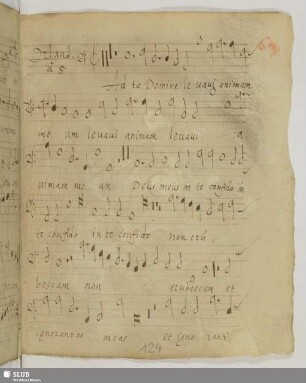 Orland.
à 5
Ad te Domine levavi animam
me am levavi animam levavi
nimam me am Deus meus in te confido in
te confido in te confido non eru
bescam non erubescam et
ignorantias meas et igno ranti
124
SLUB